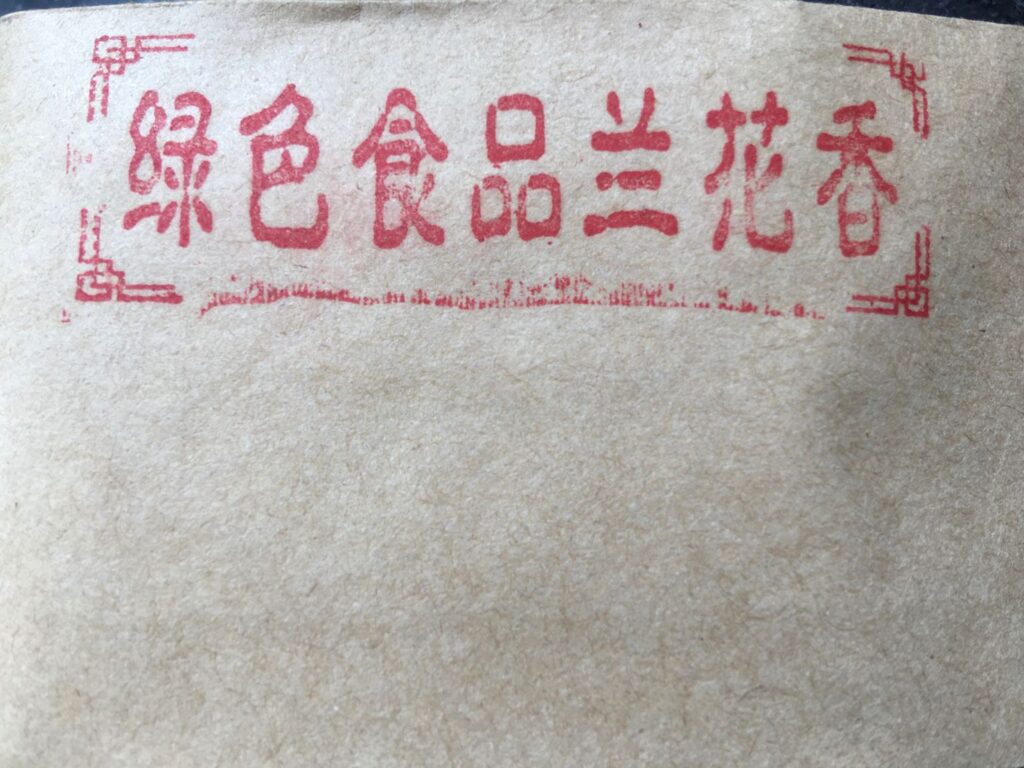 绿色食品兰花香